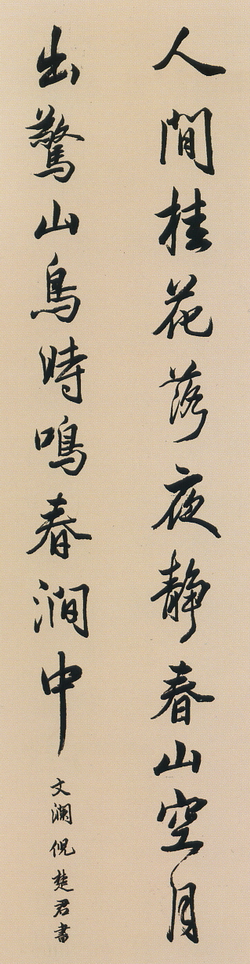 人間桂花落夜靜春山空月
出驚山鳥時鳴春澗中
文澜倪楚君書